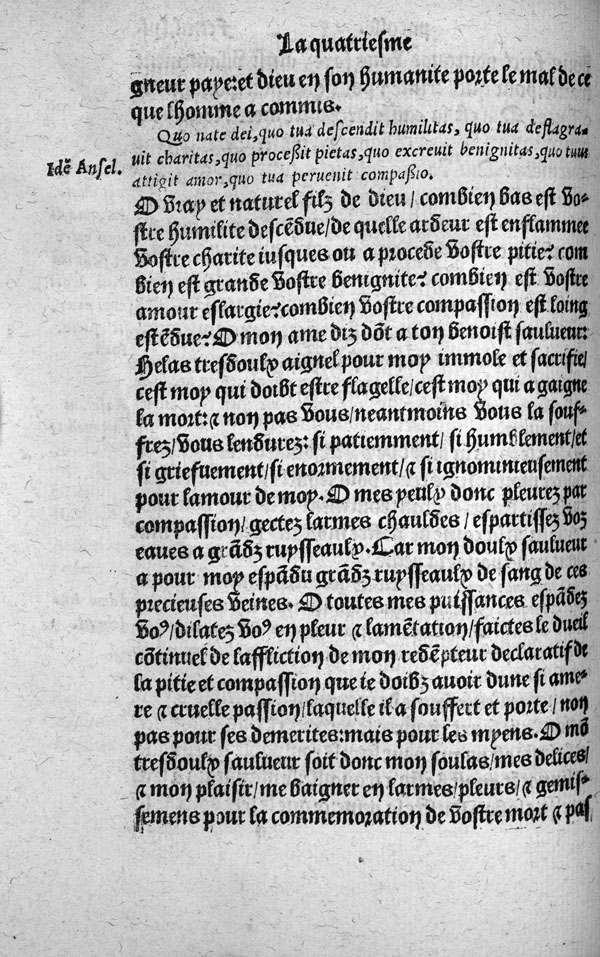 La quatriesme
gneur paye: et dieu en son humanite porte le mal de ce
que lhomme a commis.
Quo nate dei, quo tua descendit humilitas, quo tua deflagra-
Idẽ Ansel.
uit charitas, quo proceßit pietas, quo excreuit benignitas, quo tuus
attigit amor, quo tua peruenit compaßio.
O vray et naturel filz de dieu / combien bas est vo-
stre humilite descẽdue / de quelle ardeur est enflammee
vostre charite iusques ou a procede vostre pitie? com
bien est grande vostre benignite? combien est vostre
amour eslargie? combien vostre compassion est loing
estẽdue? O mon ame diz dõt a ton benoist saulueur:
Helas tresdoulx aignel pour moy immole et sacrifie /
cest moy qui doibt estre flagelle / cest moy qui a gaigne
la mort: ⁊ non pas vous / neantmoins vous la souf-
frez / vous lendurez: si patiemment / si humblement / et
si griefuement / si enormement / ⁊ si ignominieusement
pour lamour de moy. O mes yeulx donc pleurez par
compassion / gectez larmes chauldes / espartissez voz
eaues a grãdz ruysseaulx. Car mon doulx saulueur
a pour moy espãdu grãdz ruysseaulx de sang de ces
precieuses veines. O toutes mes puissances espãdez
voꝰ / dilatez voꝰ en pleur ⁊ lamẽtation / faictes le dueil
cõtinuel de laffliction de mon redẽpteur declaratif de
la pitie et compassion que ie doibz avoir dune si ame-
re ⁊ cruelle passion / laquelle il a souffert et porte / non
pas pour ses demerites: mais pour les myens. O mõ
tresdoulx saulueur soit donc mon soulas / mes delices /
⁊ mon plaisir / me baigner en larmes / pleurs / ⁊ gemis-
semens pour la commemoration de vostre mort ⁊ pas